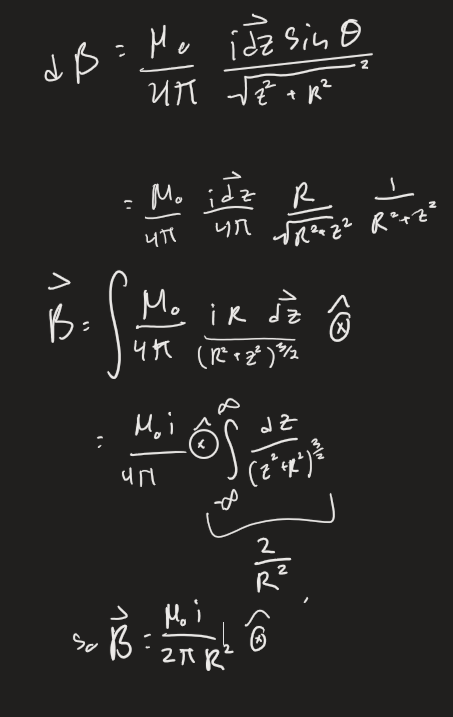 dB = μ₀/4π i d⃗z sin θ/√(z² + R²)²
= μ₀/4π i d⃗z/4π R/√(R² + z²) 1/(R² + z²)
B⃗ = ∫ μ₀/4π i R d⃗z/(R² + z²)^(3/2) ⊗̂
= μ₀ i/4π ⊗̂ ∫_{-∞}^{∞} dz/(z² + R²)^(3/2)
2/R²
so B⃗ = μ₀ i/2π R² ⊗̂